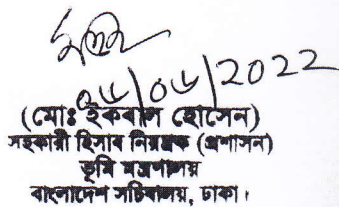 ০৮/০৬/2022
(মোঃ ইকবাল হোসেন)
সহকারী হিসাব নিয়ন্ত্রক (প্রশাসন)
ভূমি মন্ত্রণালয়
বাংলাদেশ সচিবালয়, ঢাকা।